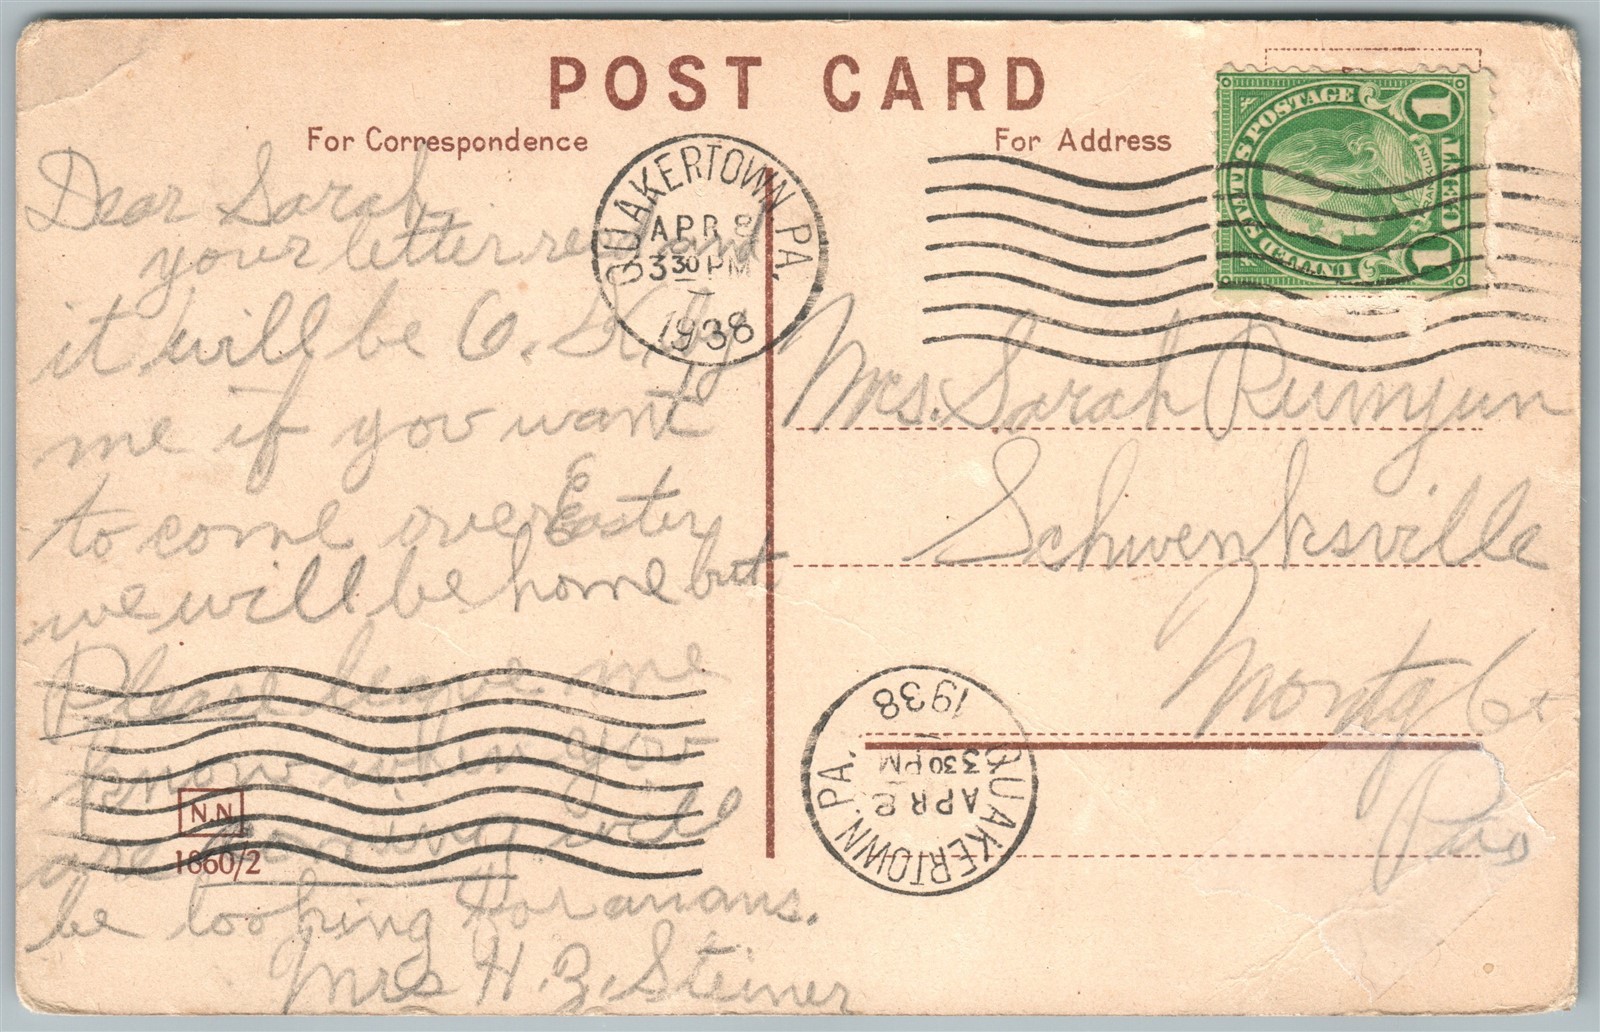 POST CARD
For Correspondence
For Address
QUAKERTOWN, PA.
APR 8
3 30 PM
1938
UNITED STATES POSTAGE
1 CENT 1
FRANKLIN
Dear Sarah,
your letter rec and
it will be O.K. by
me if you want
to come over Easter
we will be home but
Please leave me
know when you
are coming will
be looking for
Mrs H. Z. Steiner
N.N
1860/2
Mrs. Sarah Rumyun
Schwenksville
Montg Co
Pa
QUAKERTOWN, PA.
APR 8
3 30 PM
1938